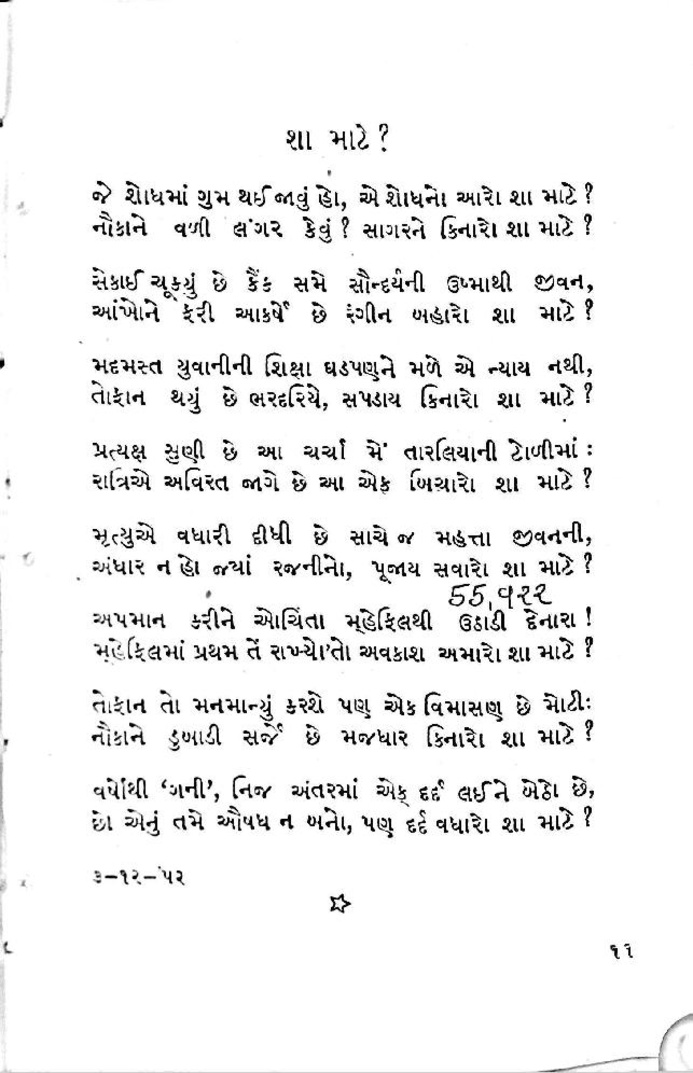 શા માટે?
જે શોધમાં ગુમ થઈ જાવું હો, એ શોધનો આરો શા માટે?
નૌકાને વળી લંગર કેવું? સાગરને કિનારો શા માટે?
સેકાઈ ચૂક્યું છે કૈંક સમે સૌન્દર્યની ઉષ્માથી જીવન,
આંખોને ફરી આકર્ષે છે રંગીન બહારો શા માટે?
મદમસ્ત યુવાનીની શિક્ષા ઘડપણને મળે એ ન્યાય નથી,
તોફાન થયું છે ભરદરિયે, સપડાય કિનારો શા માટે?
પ્રત્યક્ષ સુણી છે આ ચર્ચા મેં તારલિયાની ટોળીમાં :
રાત્રિએ અવિરત જાગે છે આ એક બિચારો શા માટે?
મૃત્યુએ વધારી દીધી છે સાચે જ મહત્તા જીવનની,
અંધાર ન હો જ્યાં રજનીનો, પૂજાય સવારો શા માટે?
55,૧૨૨
અપમાન કરીને ઓચિંતા મ્હેફિલથી ઉઠાડી દેનારા!
મ્હેફિલમાં પ્રથમ તેં રાખ્યો'તો અવકાશ અમારો શા માટે?
તોફાન તો મનમાન્યું કરશે પણ એક વિમાસણ છે મોટી:
નૌકાને ડુબાડી સર્જે છે મજધાર કિનારો શા માટે?
વર્ષોથી 'ગની', નિજ અંતરમાં એક દર્દ લઈને બેઠો છે,
છો એનું તમે ઔષધ ન બનો, પણ દર્દ વધારો શા માટે?
૩-૧૨-'૫૨
૧૧